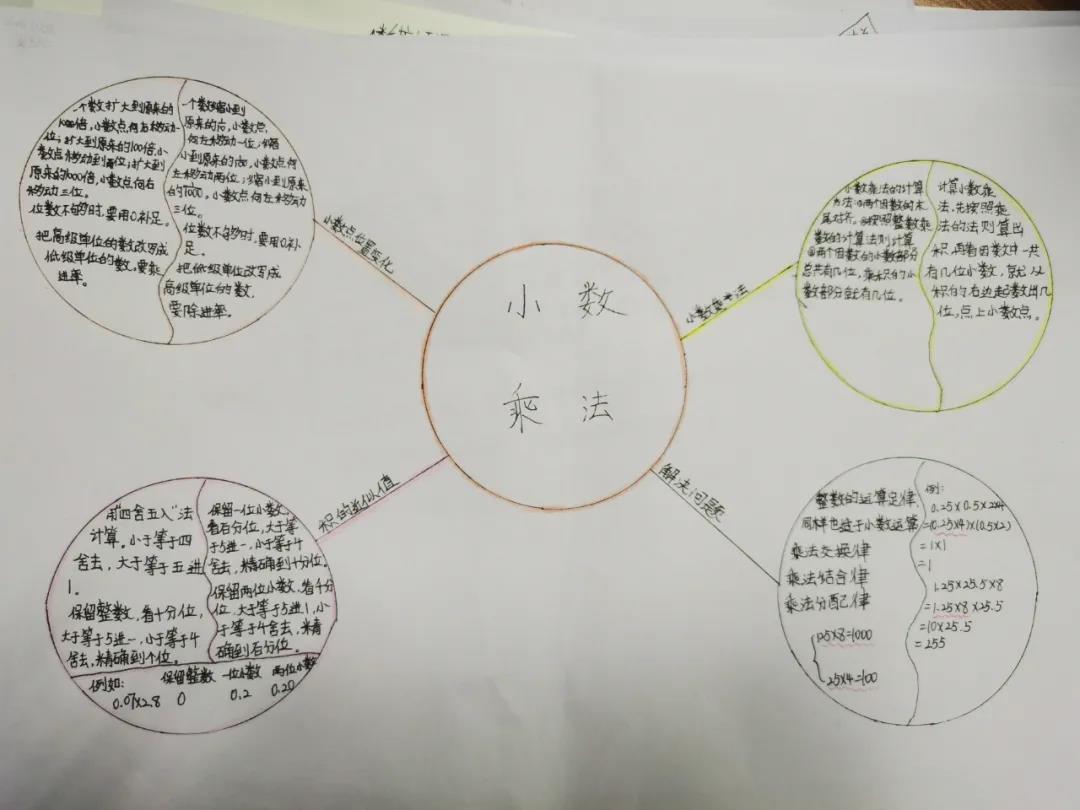 小数
乘法
小数点位置变化
一个数扩大到原来的
倍,小数点向右移动一
位;扩大到原来的100倍,小
数点移动到两位;扩大到
原来的1000倍,小数点向右
移动三位。
位数不够时,要用0补足。
把高级单位的数改写成
低级单位的数,要乘
进率。
一个数缩小到
原来的,小数点,
向左移动一位;缩
小到原来的,小数点向
左移动两位;缩小到原来
的,小数点向左移动
三位。
位数不够时,要用0补
足。
把低级单位改写成
高级单位的数,
要除进率。
小数乘法
小数乘法的计算
方法:①两个因数的末
尾对齐。②按照整数乘
数的计算法则计算
③两个因数的小数部分
总共有几位,乘积的小
数部分就有几位。
计算小数乘
法,先按照乘
法的法则算出
积,再看因数中一共
有几位小数,就从
积的右边起数出几
位,点上小数点。
积的近似值
用“四舍五入”法
计算。小于等于四
舍去,大于等于五进
1。
保留整数,看十分位,
大于等于5进一,小于等于4
舍去,精确到个位。
保留一位小数,
看百分位,大于等
于5进一,小于等于4
舍去,精确到十分位。
保留两位小数,看千分
位,大于等于5进1,小
于等于4舍去,精
确到百分位。
例如: 保留整数 一位小数 两位小数
0.07×2.8 0 0.2 0.20
解决问题
整数的运算定律,
同样也适于小数运算
乘法交换律
乘法结合律
乘法分配律
125×8=1000
25×4=100
例:
0.25×0.5×2×4
=(0.25×4)×(0.5×2)
=1×1
=1
1.25×25.5×8
=1.25×8×25.5
=10×25.5
=255